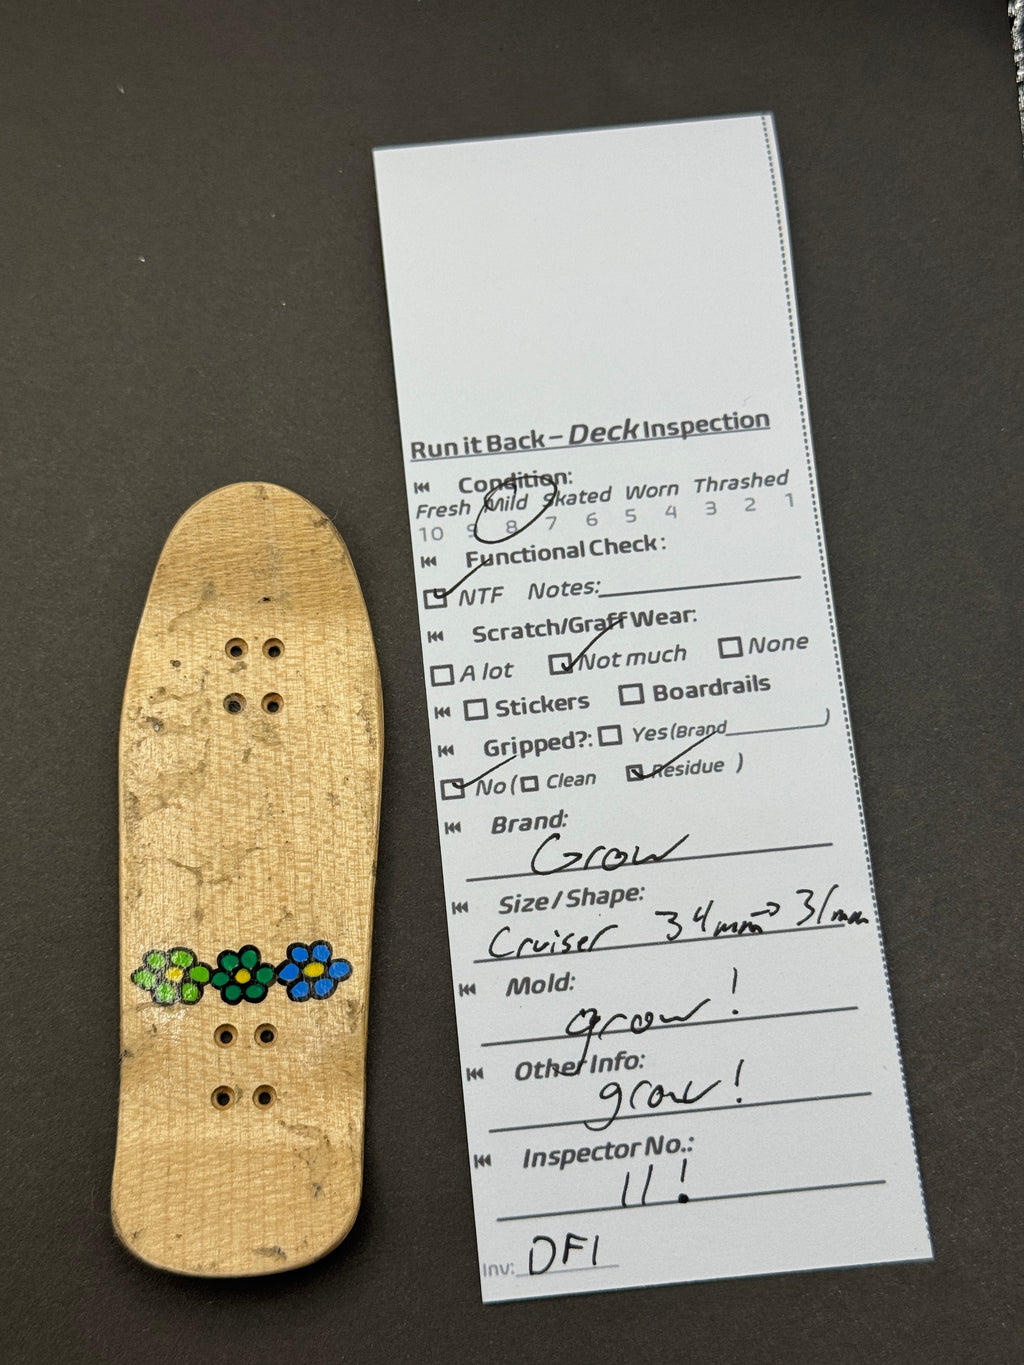 Run it Back – Deck Inspection
Condition:
Fresh Mild Skated Worn Thrashed
10 9 8 7 6 5 4 3 2 1
Functional Check:
NTF Notes:
Scratch/Graff Wear:
A lot Not much None
Stickers Boardrails
Gripped?: Yes (Brand )
No ( Clean Residue )
Brand:
Grow
Size / Shape:
Cruiser 34mm → 31mm
Mold:
grow!
Other Info:
grow!
Inspector No.:
11!
Inv: DF1